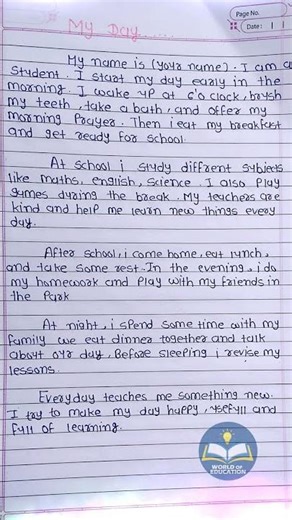 Page No.
Date: | |
My Day......
My name is (your name). I am a
Student. I start my day early in the
morning. I wake up at 6'o clock, brush
my teeth, take a bath, and offer my
morning Prayer. Then i eat my breakfast
and get ready for school.
At school i study diffrent subjects
like maths, english, science. I also play
games during the break. My teachers are
kind and help me learn new things every
day.
After school, i come home, eat lunch,
and take some rest. In the evening, i do
my homework and Play with my friends in
the Park
At night, i spend some time with my
family we eat dinner together and talk
about our day, Before sleeping i revise my
lessons.
Everyday teaches me something new.
I try to make my day happy, usefull and
full of learning.
WORLD OF
EDUCATION